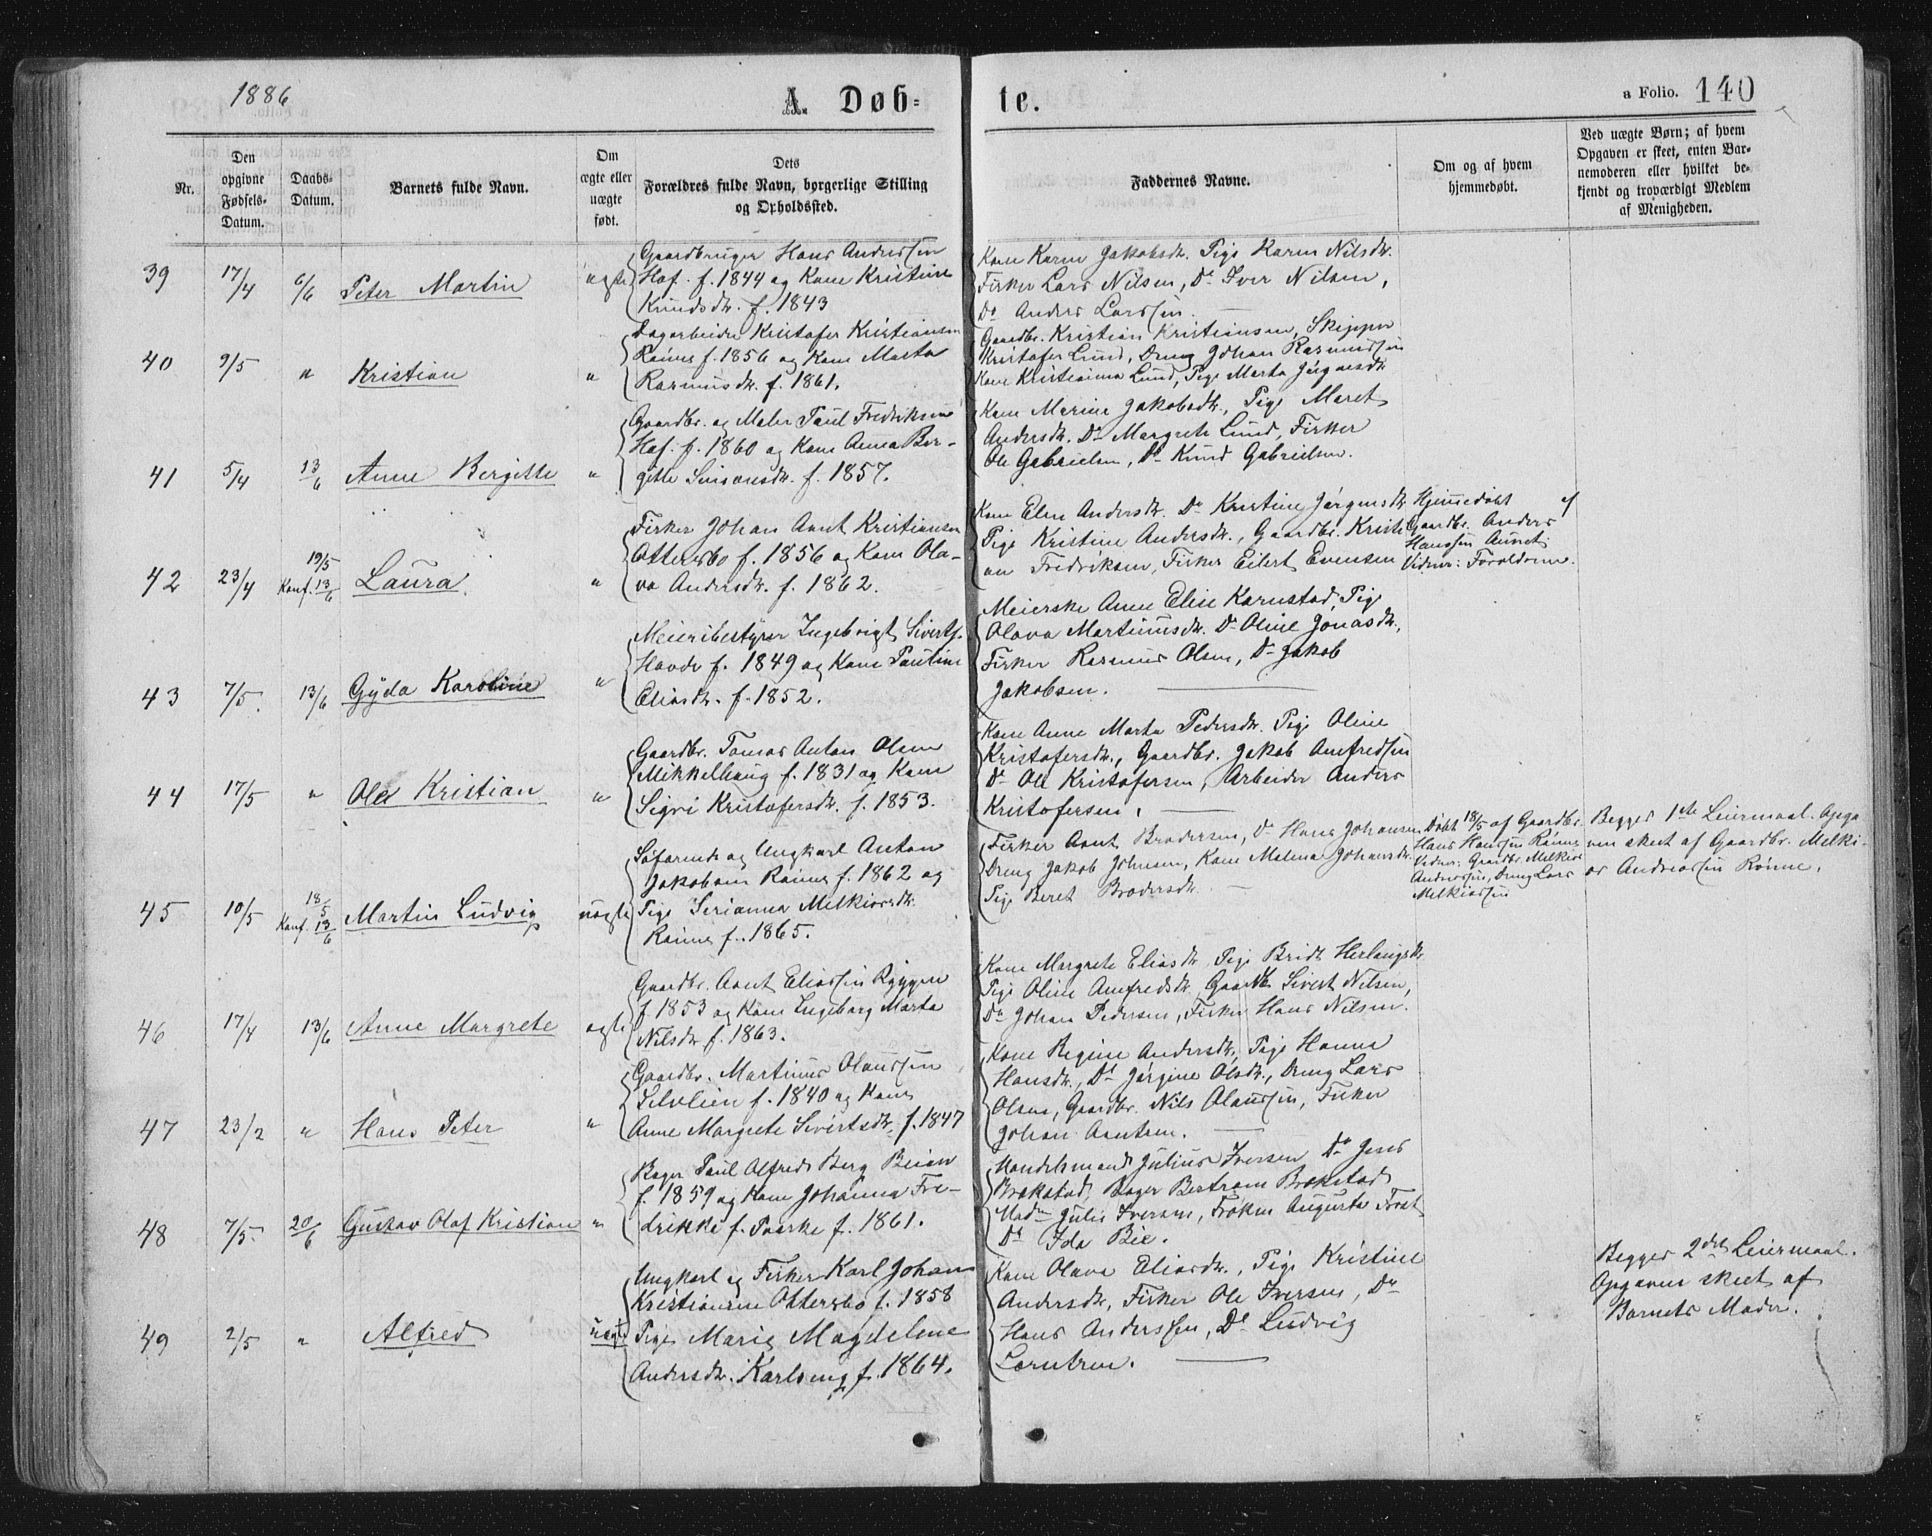 1886
A. Døb-
te.
a Folio. 140
Nr.
Den opgivne Fødsels-Datum.
Daabs-Datum.
Barnets fulde Navn.
Om ægte eller uægte født.
Dets Forældres fulde Navn, borgerlige Stilling og Opholdssted.
Faddernes Navne.
Om og af hvem hjemmedøbt.
Ved uægte Børn; af hvem Opgaven er skeet, enten Barnemoderen eller hvilket bekjendt og troværdigt Medlem af Menigheden.
39 17/4 6/6 Peter Martin ægte
Gaardbruger Hans Anderssen
Hof. f. 1844 og Kone Kristine
Knudsdtr. f. 1843
Kone Karen Jakobsdtr. Pige Karen Nilsdtr.
Fisker Lars Nilsen, Do Iver Nilsen,
Do Anders Larssen.
40 9/5 " Kristian "
Dagarbeider Kristofer Kristiansen
f. 1856 og Kone Marta
Rasmusdtr. f. 1861.
Gaardbr. Kristian Kristiansen, Skipper
Kristofer Lund, Dreng Johan Rasmussen
Kone Kristianna Lund, Pige Marta Jørgensdtr
41 5/4 13/6 Anne Bergitte "
Gaardbr. og Maler Paul Fredriksen
Hof. f. 1860 og Kone Anna Ber-
gitte Simonsdtr. f. 1857.
Kone Marine Jakobsdtr., Pige Maret
Andersdtr. Do Margrete Lund, Fisker
Ole Gabrielsen, Do Knud Gabrielsen.
42 23/4 19/5 Konf. 13/6 Laura "
Fisker Johan Arnt Kristiansen
Ottersbo f. 1856 og Kone Ola-
va Andersdtr. f. 1862.
Kone Elen Andersdtr. Do Kristine Jørgensdtr
Pige Kristine Andersdtr., Gaardbr. Kristi
an Fredriksen, Fisker Eilert Evensen
Hjemmedøbt af
Gaardbr. Anders
Hanssen Aunet
Vidner: Forældrene.
43 7/5. 13/6 Gyda Karoline "
Meieribestyrer Ingebrigt Siverts.
Hovde f. 1849 og Kone Pauline
Eliasdtr. f. 1852.
Meierske Anne Elise Karnstad, Pige
Olava Martinusdtr. Do Oline Jonasdtr,
Fisker Rasmus Olsen, Do Jakob
Jakobsen.
44 17/5 " Ole Kristian "
Gaardbr. Tomas Anton Olsen
Mikkelhaug f. 1831 og Kone
Sigri Kristofersdtr. f. 1853.
Kone Anne Marta Pedersdtr. Pige Oline
Kristofersdtr., Gaardbr. Jakob Arnfredsen
Do Ole Kristofersen, Arbeider Anders
Kristofersen.
45 10/5 18/5 Konf. 13/6 Martin Ludvig uægte
Søfarende og Ungkarl Anton
Jakobsen f. 1862 og
Pige Serianna Melkiorsdtr.
f. 1865.
Fisker Arnt Brodersen, Do Hans Johansen
Dreng Jakob Johnsen, Kone Malena Johansdtr.
Pige Beret Brodersdtr.
Døbt 18/5 af Gaardbr.
Hans Hanssen Rønne
Vidner: Gaardbr. Melkior
Anderssen, Dreng Lars
Melkiorssen
Begges 1ste Leiermaal. Opga
ven skeet af Gaardbr. Melki-
or Andreassen Rønne.
46 17/4 13/6 Anne Margrete ægte
Gaardbr. Arnt Eliassen Ryggen
f. 1853 og Kone Ingeborg Marta
Nilsdtr f. 1863.
Kone Margrete Eliasdtr, Pige Bridt Herlaugsdtr.
Pige Oline Arnfredsdtr. Gaardb Sivert Nilsen,
Do Johan Pedersen, Fisker Hans Nilsen.
47 23/2 " Hans Peter "
Gaardbr. Martinus Olaussen
Selvlien f. 1840 og Kone
Anne Margrete Sivertsdtr. f. 1847
Kone Regine Andersdtr, Pige Hanna
Hansdtr., Do Jørgine Olsdtr., Dreng Lars
Olsen, Gaardbr. Nils Olaussen, Fisker
Johan Arntsen.
48 7/5 20/6 Gustav Olaf Kristian "
Bager Paul Alfred Berg Beian
f. 1859 og Kone Johanna Fre-
drikke f. f. 1861.
Handelsmand Julius Iversen Do Jens
Brækstad, Bager Bertram Brækstad
Madm Julie Iversen, Frøken Augusta Frost
Do Ida Bie.
49 2/5 " Alfred uægte
Ungkarl og Fisker Karl Johan
Kristiansen Ottersbo f. 1858
Pige Marie Magdalena
Andersdtr. Karlseng f. 1864.
Kone Olava Eliasdtr., Pige Kristine
Andersdtr, Fisker Ole Iversen, Do
Hans Anderssen, Do Ludvig
Lorntsen.
Begges 2det Leiermaal.
Opgaven skeet af
Barnets Moder.